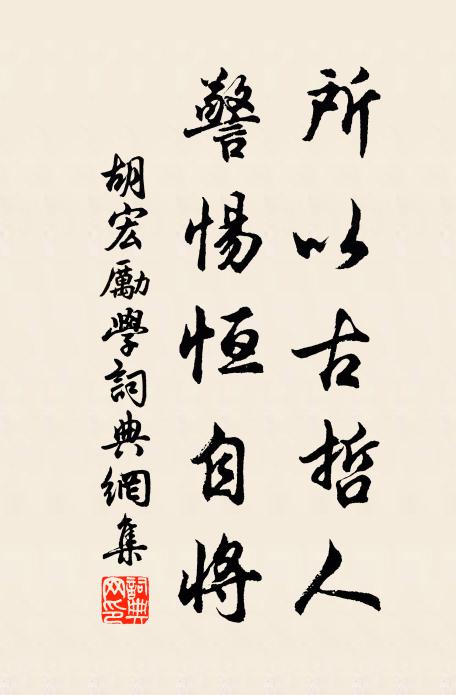 所以古哲人
警惕恒自將
胡宏勵學詞典網集
詞典网印